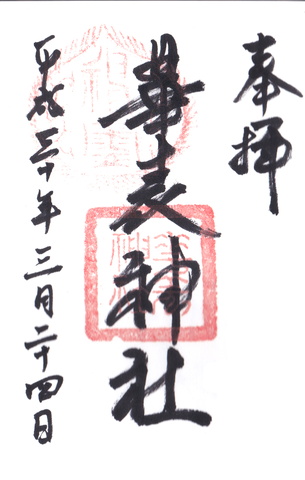 奉拝
華表神社
平成三十年三月二十四日